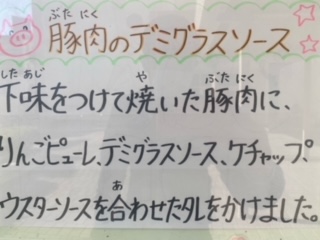 ぶた にく
豚肉のデミグラスソース
したあじ や ぶた にく
下味をつけて焼いた豚肉に、
りんごピューレ、デミグラスソース、ケチャップ、
あ
ウスターソースを合わせたタレをかけました。